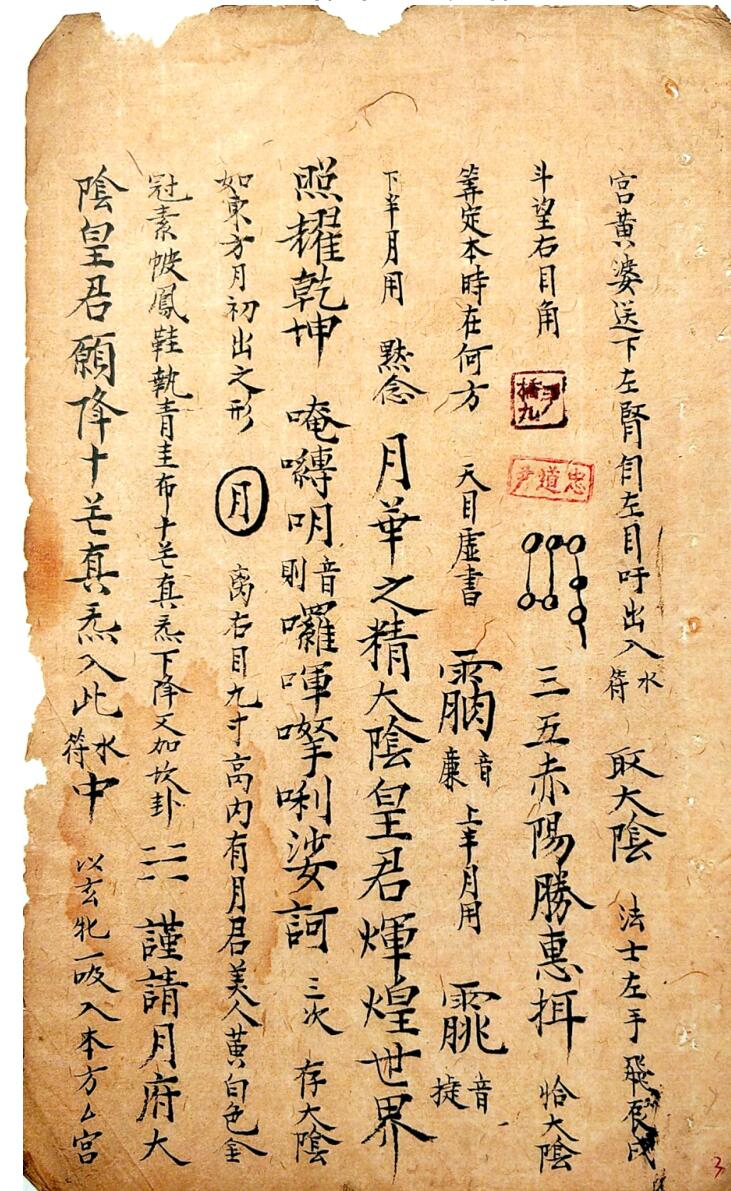 宮黃婆送下左腎自左目吁出入水符 取大陰 法士左手飛辰戌
斗望右目角 三五赤陽勝惠揖 恰大陰
筭定本時在何方 天目虛書 音廉 上半月用 音捷
下半月用 默念 月華之精大陰皇君煇煌世界
照耀乾坤 唵囀吅音則囉㖮㘄唎娑訶 三次 存大陰
如東方月初出之形 月 离右目九寸高內有月君美人黃白色金
冠素帔鳳鞋執青圭布十芒真炁下降又加坎卦 ☵ 謹請月府大
陰皇君願降十芒真炁入此水符中 以玄牝一吸入本方厶宮
忠道尹
3